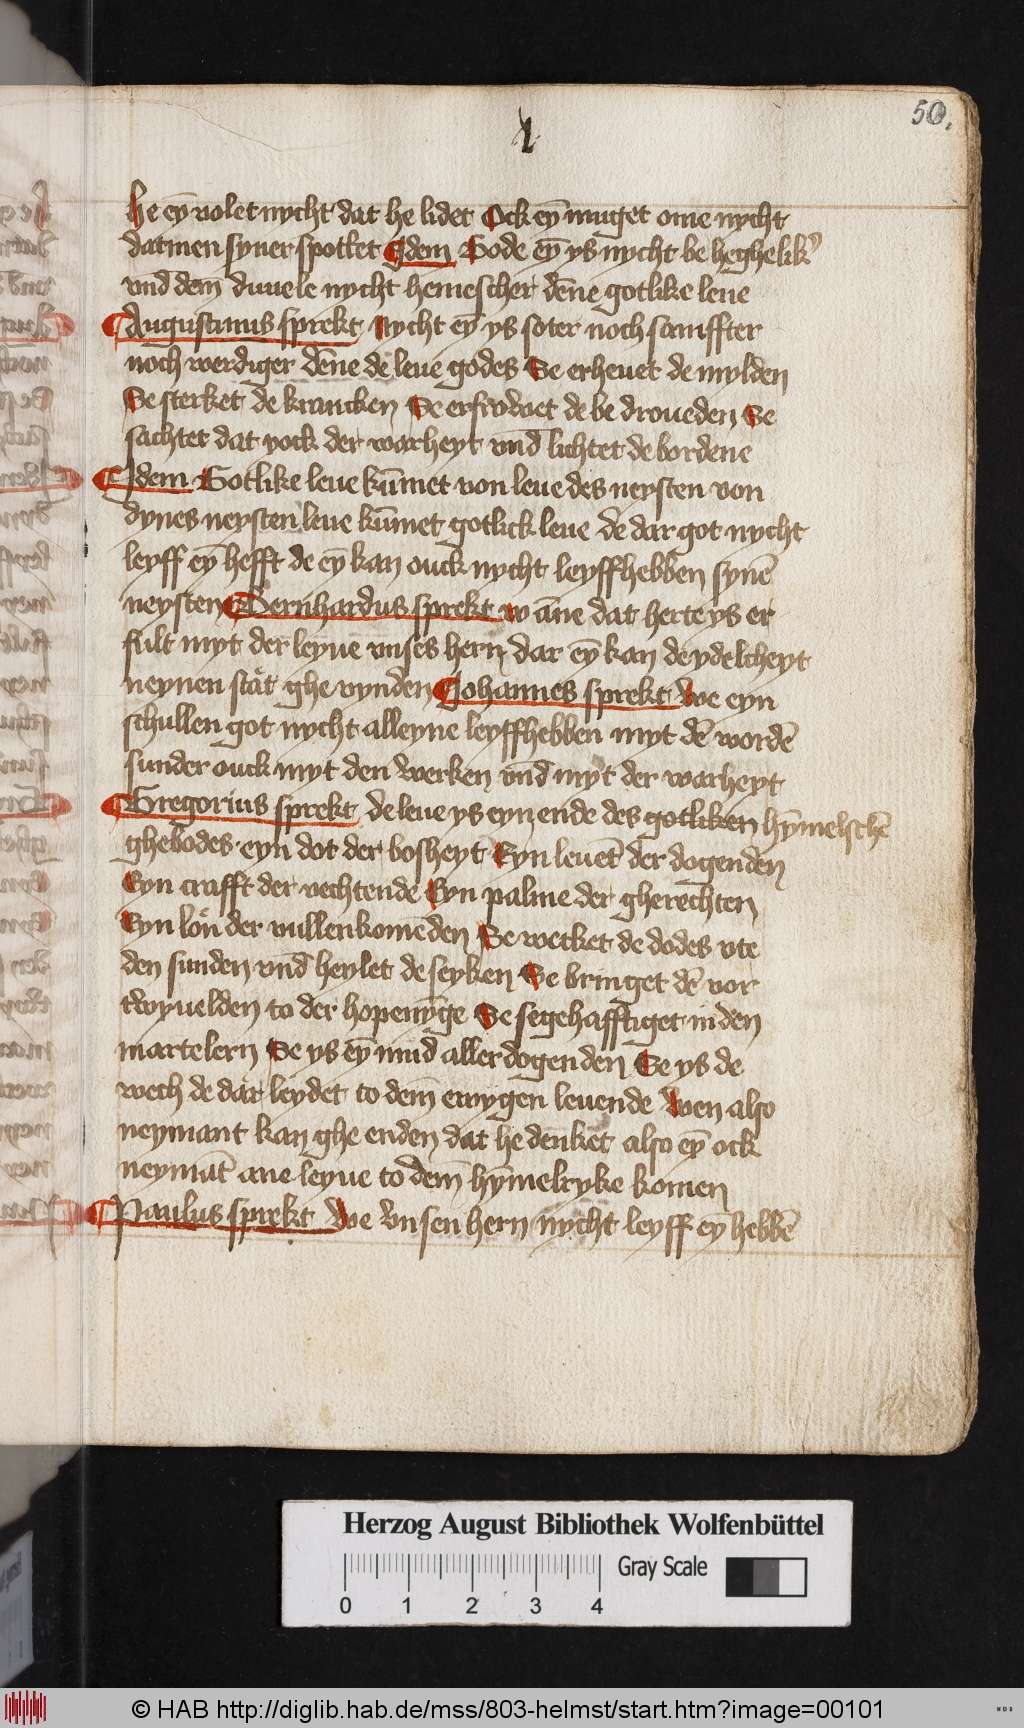 50.
he eȳ volet nycht dat he lidet Ock eȳ muget ome nycht
datmen syner spottet Idem Gode eȳ ys nycht be heghelik
vnd dem duuele nycht hemescher dēne gotlike leue
Augustinus sprekt nycht eȳ ys soter noch sanffter
noch werdiger dēne de leue godes Se erheuet de mylden
Se sterket de krancken Se erfrowet de be droueden Se
sachtet dat yock der warheyt vnd lichtet de bordene
Idem Gotlike leue kūmet von leue des neysten von
dynes neysten leue kūmet gotlick leue de dar got nycht
leyff eȳ hefft de eȳ kan ouck nycht leyffhebben synē
neysten Bernhardus sprekt w āne dat herte ys er
fult myt der leyue vnses hern dar eȳ kan de ydelcheyt
neynen stat ghe vynden Johannes sprekt We eyn
schullen got nycht alleyne leyffhebben myt dē wordē
sunder ouck myt den werken vnd myt der warheyt
Gregorius sprekt de leue ys eyn ende des gotliken hȳmelschē
ghebodes eyn dot der bosheyt Eyn leuēt der dogenden
Eyn crafft der vechtende Eyn palme der gherechten
Eyn lon der vullenkomēden Se wecket de dodes vte
den sunden vnd heylet de seyken Se bringet dē vor
twyuelden to der hopenȳge Se segehafftiget in den
martelern Se ys eȳ mud aller dogenden Se ys de
wech de dar leydet to dem ewygen leuende Wen also
neymant kan ghe enden dat he denket also eȳ ock
neymāt ane leyue to dem hȳmelryke komen
Paulus sprekt We vnsen hern nycht leyff eȳ hebbē
Herzog August Bibliothek Wolfenbüttel
Gray Scale
0 1 2 3 4
© HAB http://diglib.hab.de/mss/803-helmst/start.htm?image=00101